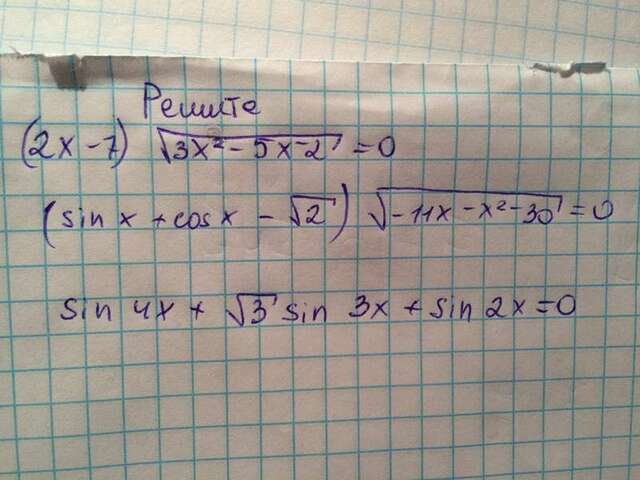 Решите
(2x-7) √3x²-5x-2 = 0
(sin x + cos x - √2) √-11x-x²-30 = 0
sin 4x + √3 sin 3x + sin 2x = 0